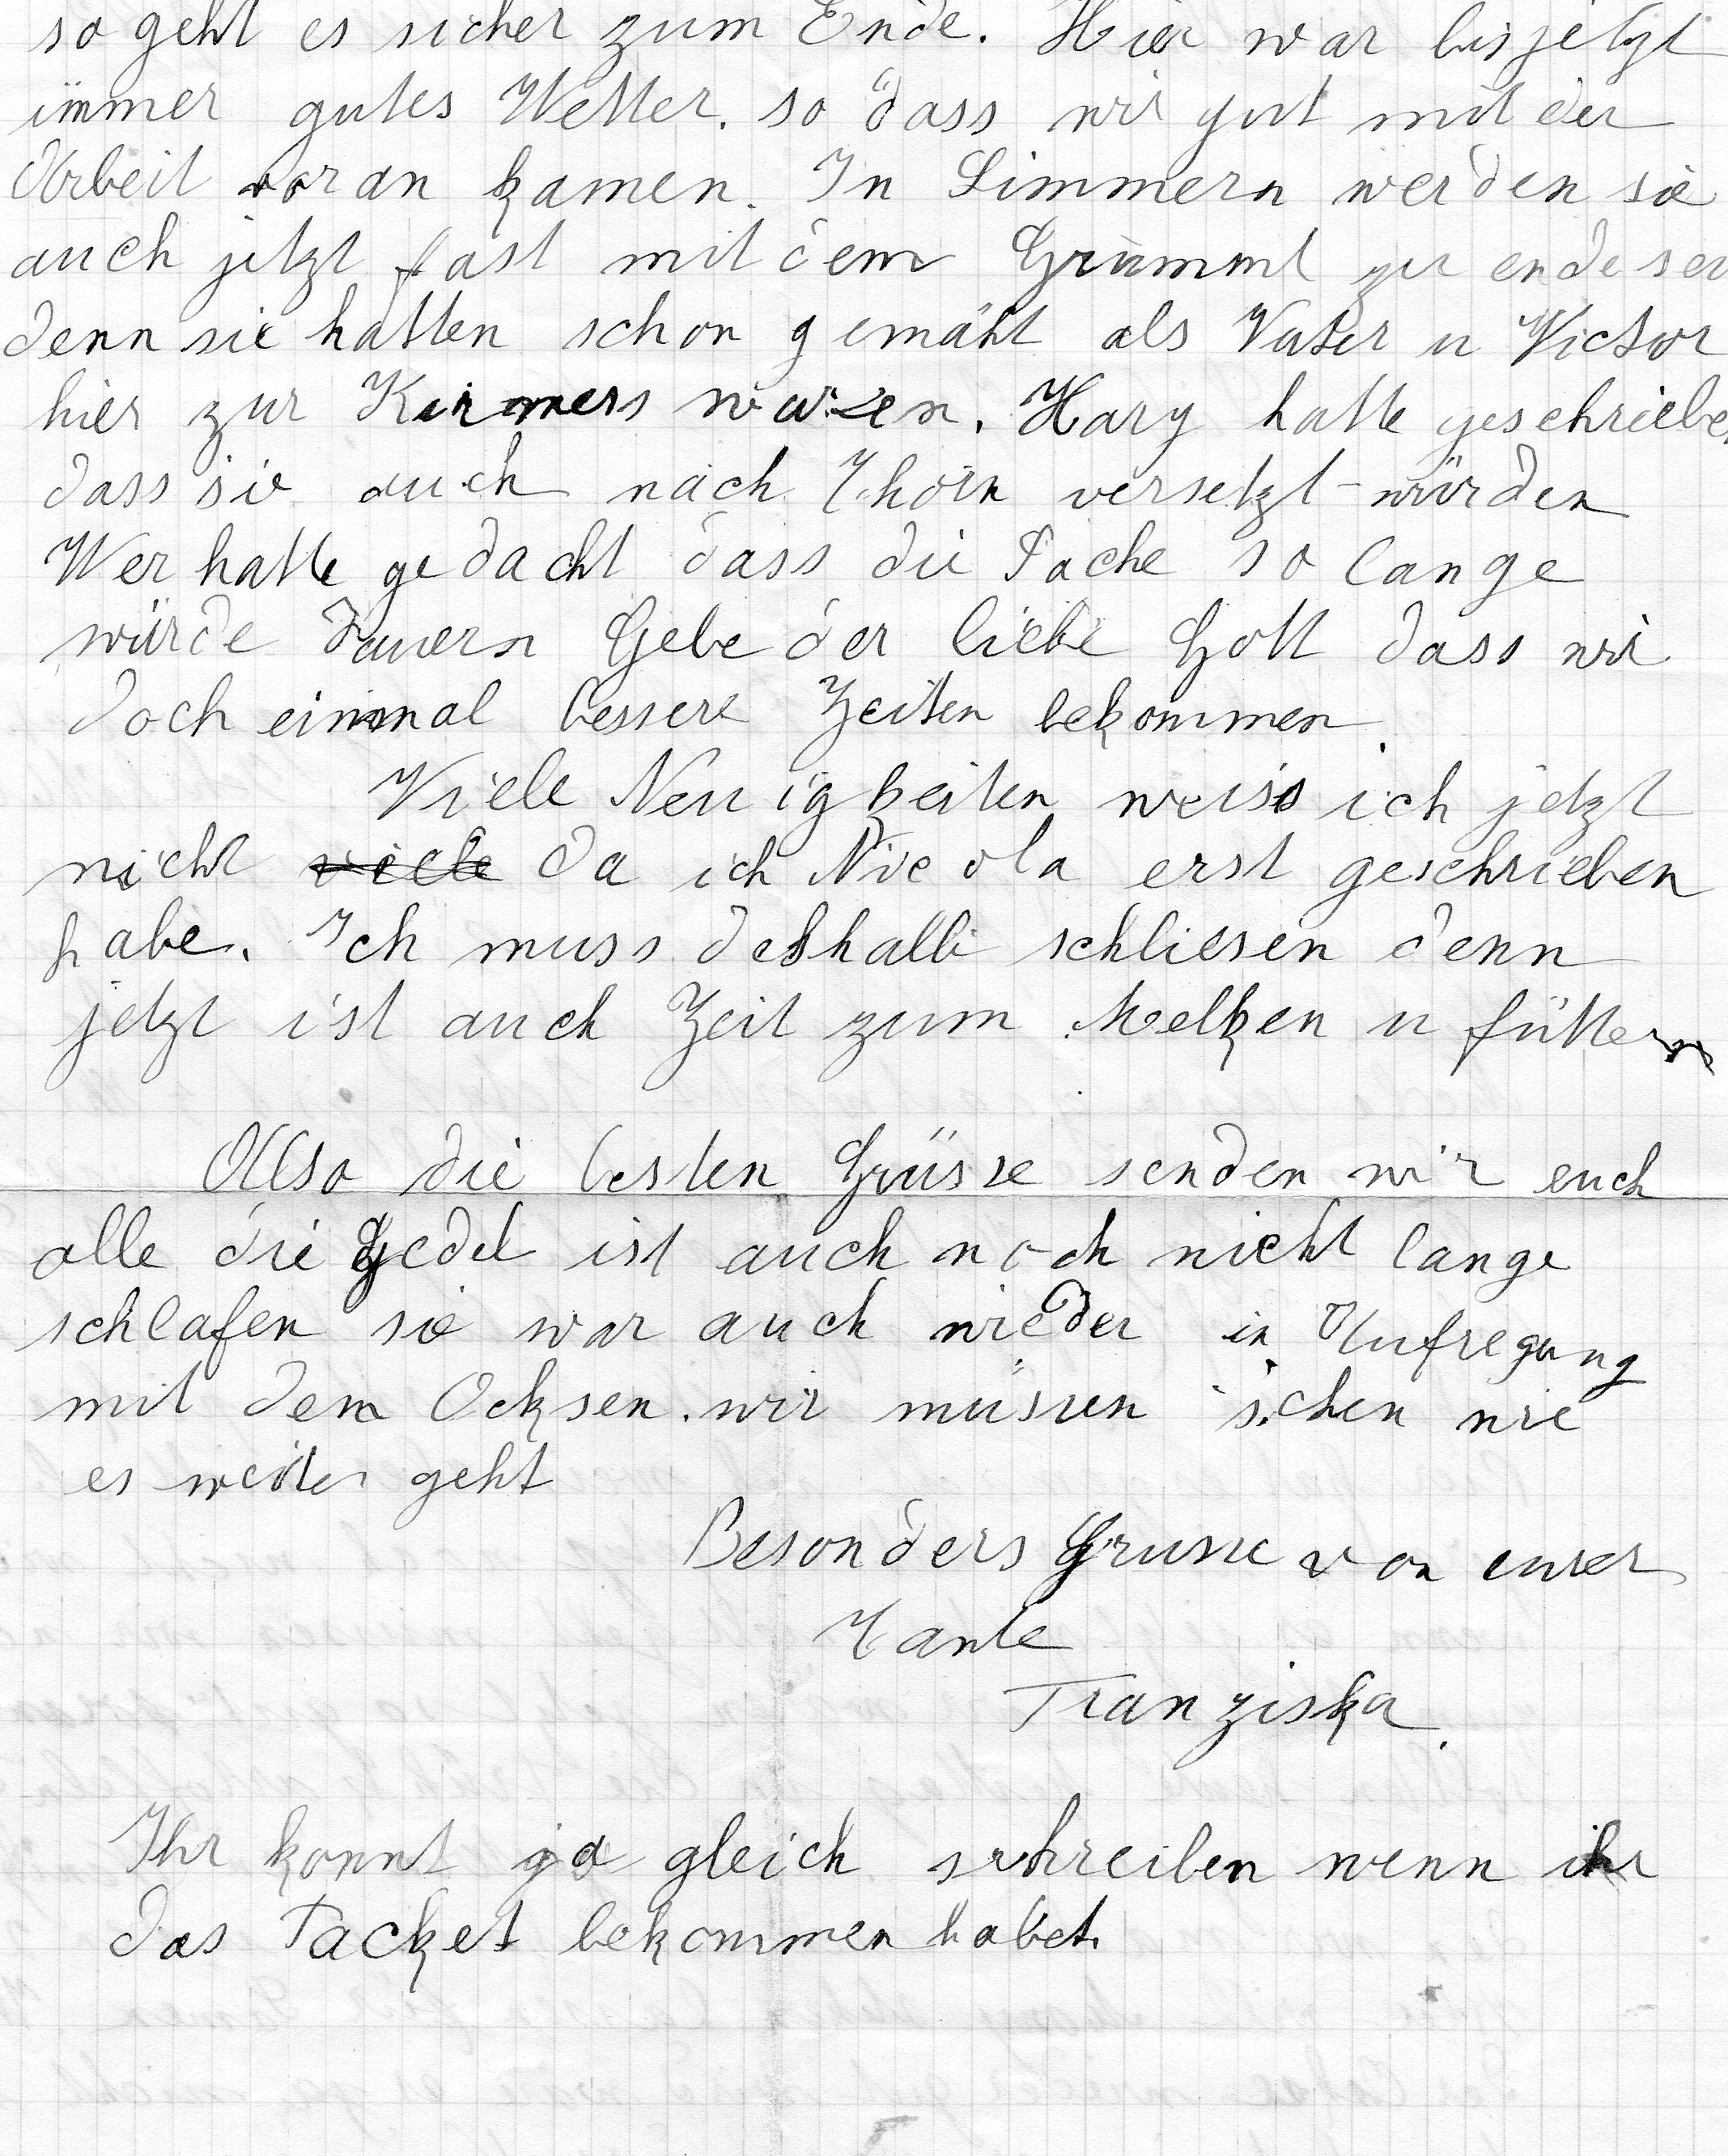 so geht es sicher zum Ende. Hier war bisjetzt
immer gutes Wetter. so dass wir gut mit der
Arbeit voran kamen. In Simmern werden sie
auch jetzt fast mit dem Grümmt zu ende sei
denn sie hatten schon gemäht als Vater u Victor
hier zur Kirmers waren. Hary hatte geschrieben
dass sie auch nach Thorn versetzt würden
Wer hatte gedacht dass die Sache so lange
würde dauern Gebe der liebe Gott dass wir
doch einmal bessere Zeiten bekommen.
Viele Neuigkeiten weiss ich jetzt
nicht viele da ich Nicola erst geschrieben
habe. Ich muss deshalb schliesen denn
jetzt ist auch Zeit zum Melken u füttern
Also die besten Grüsse senden wir euch
alle die Gedel ist auch noch nicht lange
schlafen sie war auch wieder in Aufregung
mit dem Ocksen. wir müssen sehen wie
es weiter geht
Besonders Grusse von eurer
Tante
Franziska.
Ihr konnt ja gleich schreiben wenn ihr
das Packet bekommen habet.